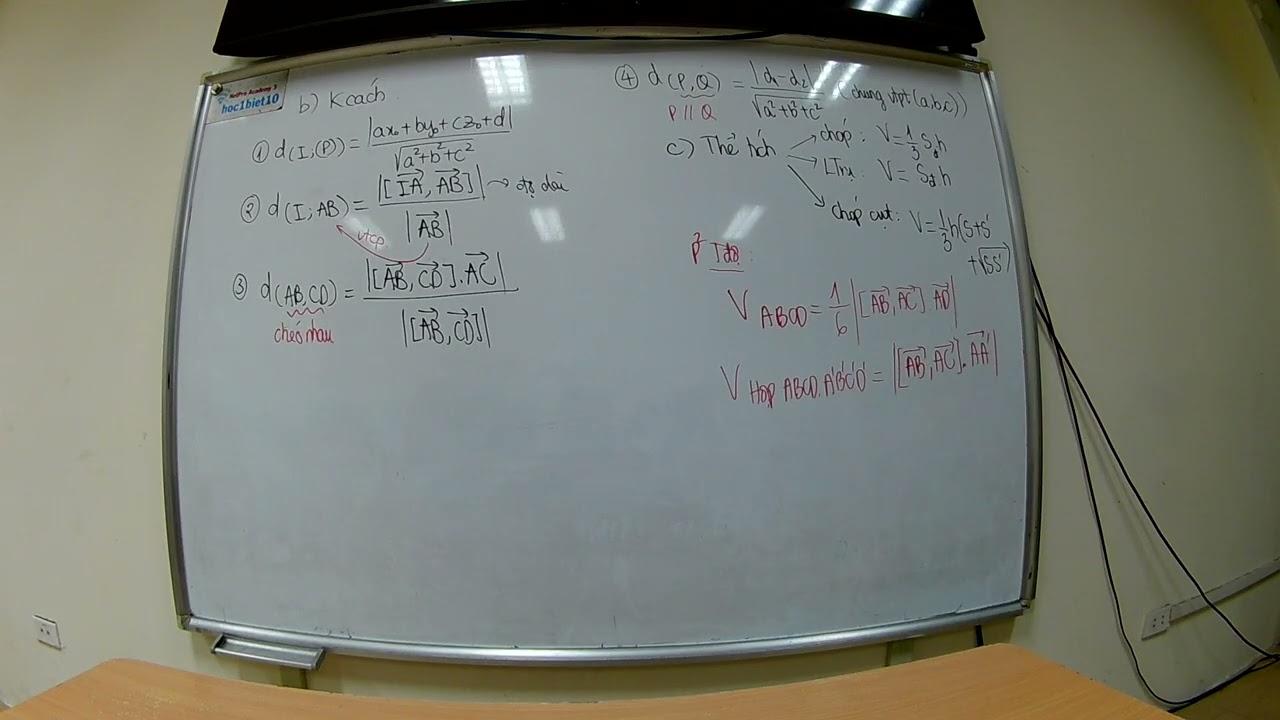 NetPro Academy 3
hoc1biet10
b) Kcách
① d(I;(P)) = |ax₀+by₀+cz₀+d| / √(a²+b²+c²)
② d(I;AB) = |[IA→, AB→]| / |AB→| → độ dài
vtcp
③ d(AB,CD) = |[AB→, CD→].AC→| / |[AB→, CD→]|
chéo nhau
④ d(P,Q) = |d₁-d₂| / √(a²+b²+c²) (chung vtpt (a,b,c))
P // Q
c) Thể tích
→ chóp: V = 1/3 Sđh
→ LTrụ: V = Sđh
→ chóp cụt: V = 1/3 h(S+S'
+√SS')
P² Tđộ:
V ABCD = 1/6 |[AB→, AC→] AD→|
V Hộp ABCD.A'B'C'D' = |[AB→, AC→].AA'→|